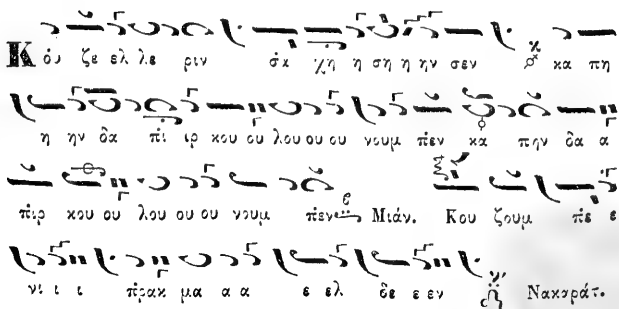 Κ ὀυ ζε ελ λε ριν σ̇α χη η ση η ην σεν κα πη
η ην δα π̇ι ιρ κου ου λου ου ου νουμ π̇εν κα πην δα α
π̇ιρ κου ου λου ου ου νουμ π̇εν Μιάν. Κου ζουμ π̇ε ε
νι ι ι π̇ρακ μα α α ε ελ δε ε εν Νακαράτ.